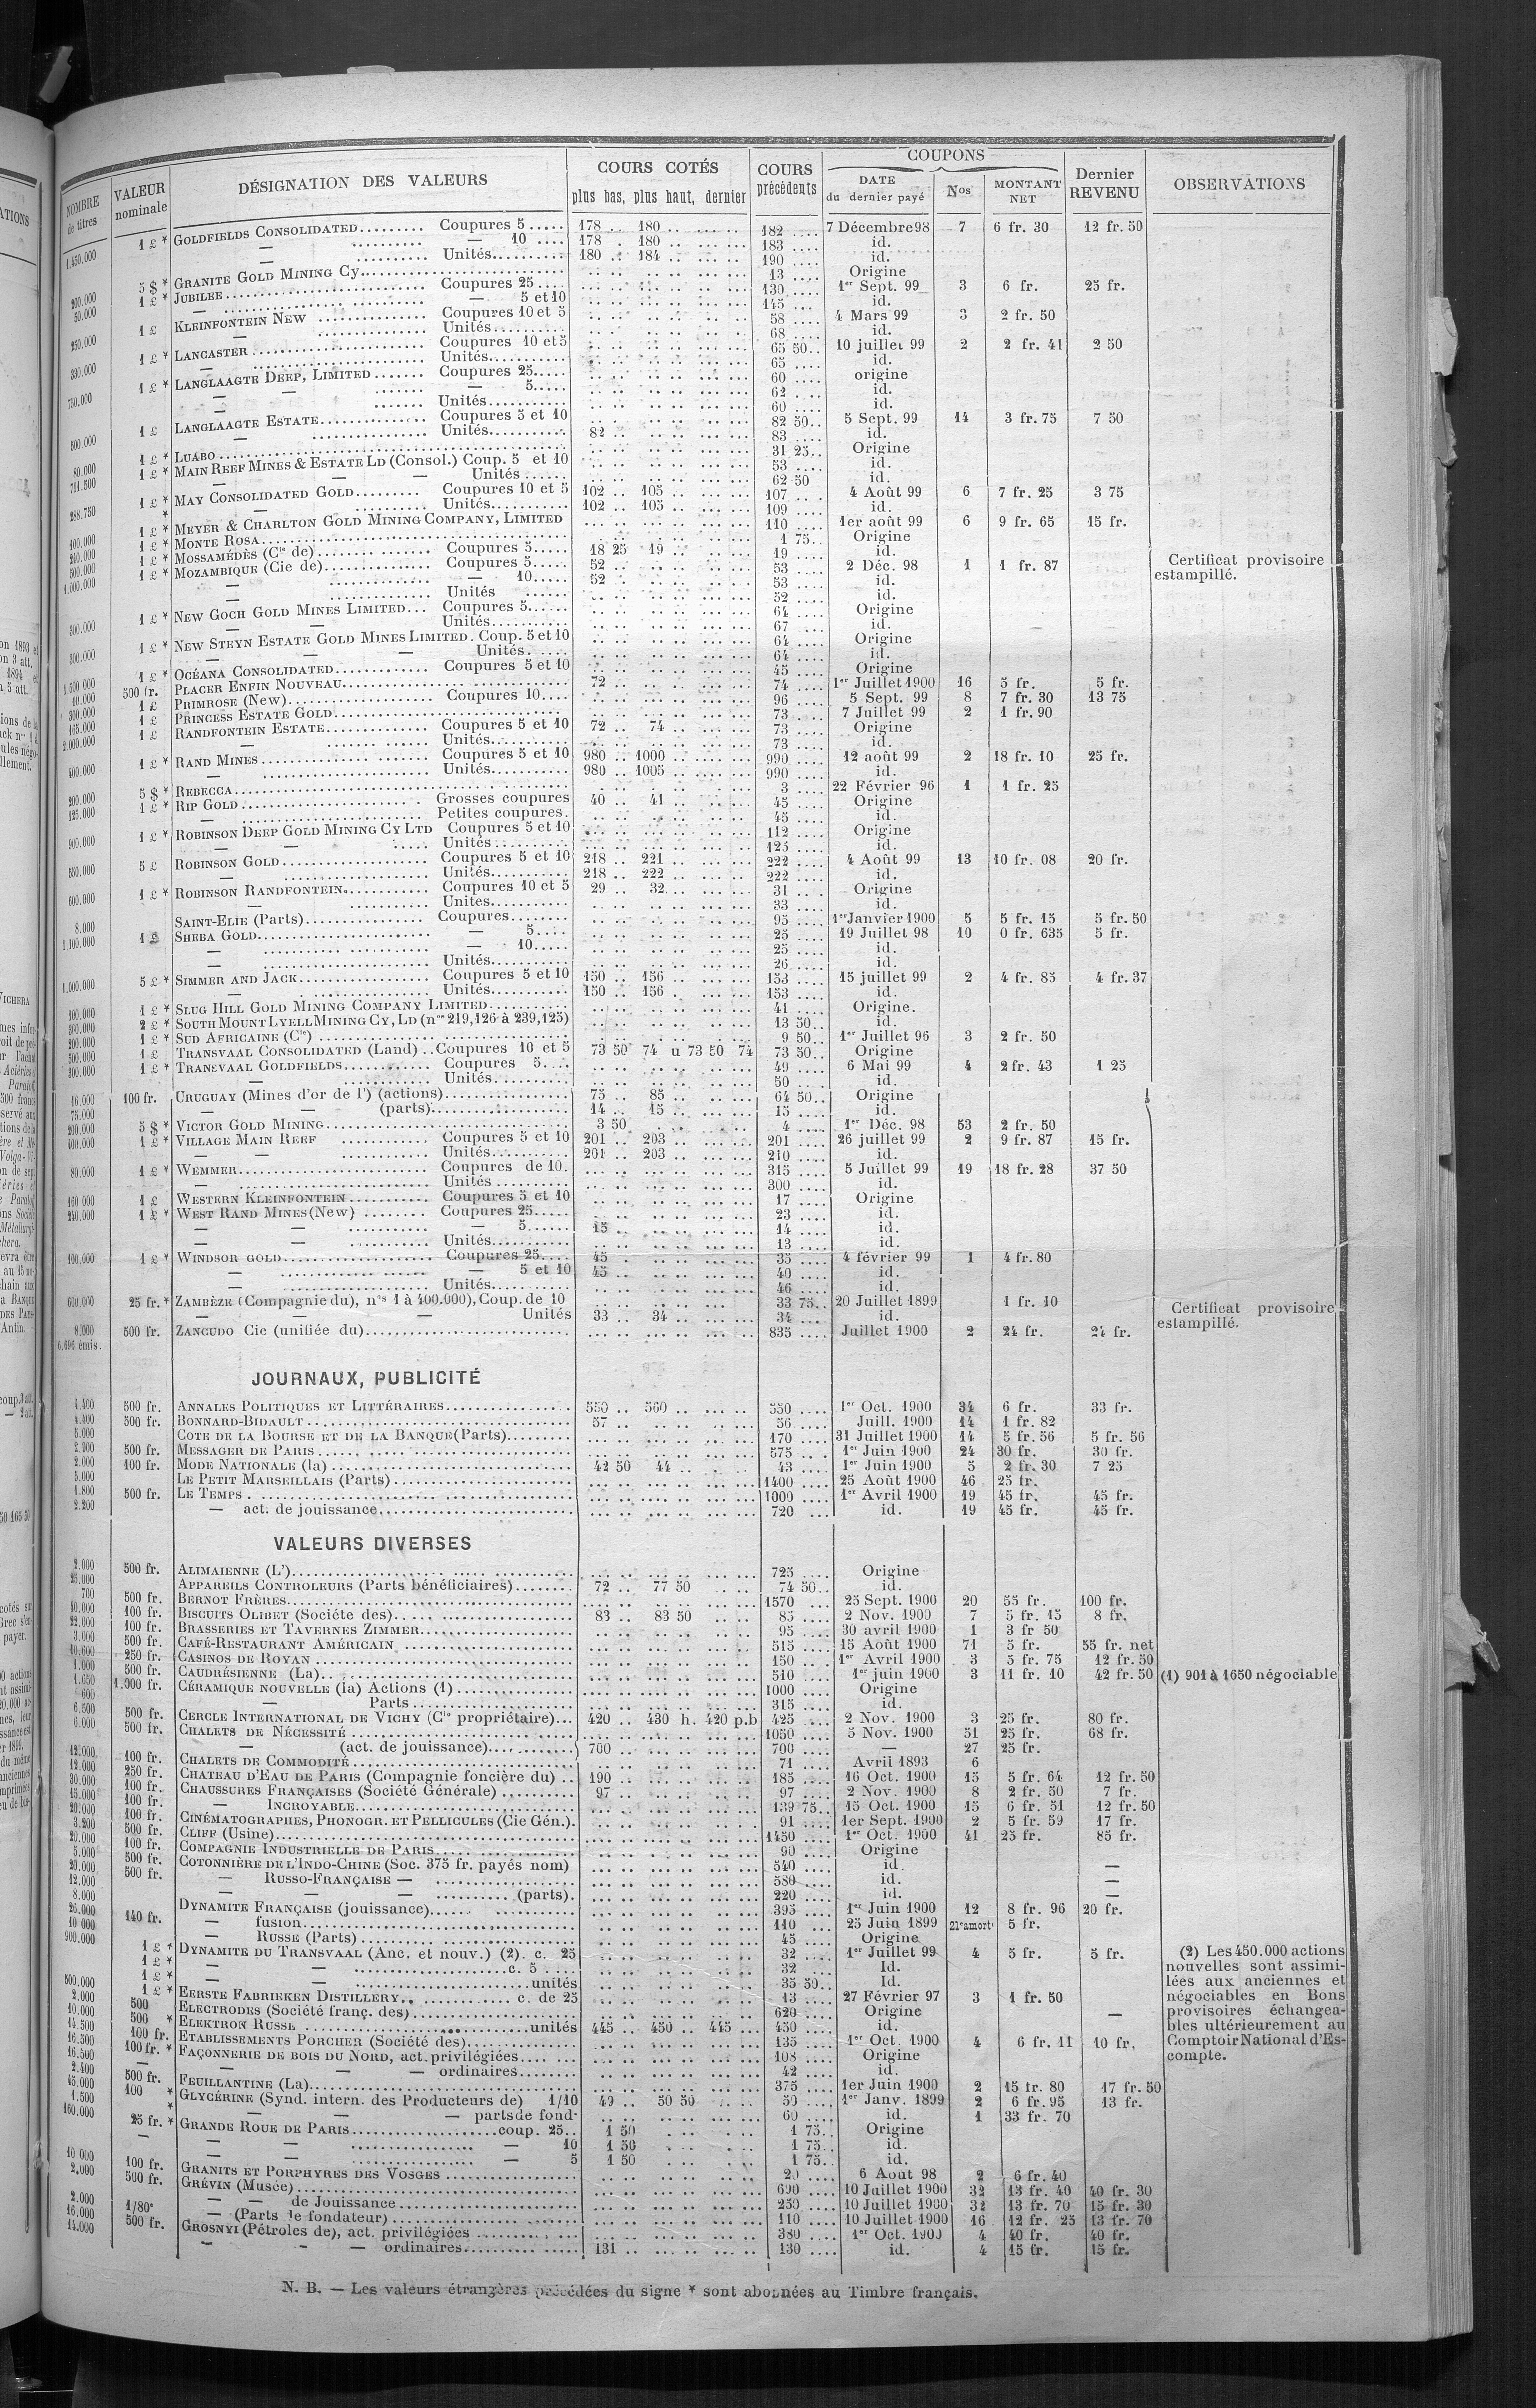 NOMBRE de titres | VALEUR nominale | DÉSIGNATION DES VALEURS | COURS COTÉS plus bas, plus haut, dernier | COURS précédents | COUPONS DATE du dernier payé | Nos | MONTANT NET | Dernier REVENU | OBSERVATIONS
1 £ * GOLDFIELDS CONSOLIDATED Coupures 5 178 180 182 7 Décembre 98 7 6 fr. 30 12 fr. 50
— — 10 178 180 183 id.
Unités 180 184 190 id.
5 $ * GRANITE GOLD MINING Cy 13 Origine
200.000 1 £ * JUBILEE Coupures 25 130 1er Sept. 99 3 6 fr. 25 fr.
50.000 — — 5 et 10 145 id.
1 £ KLEINFONTEIN NEW Coupures 10 et 5 58 4 Mars 99 3 2 fr. 50
— Unités 68 id.
1 £ * LANCASTER Coupures 10 et 5 65 50 10 juillet 99 2 2 fr. 41 2 50
— Unités 65 id.
1 £ * LANGLAAGTE DEEP, LIMITED Coupures 25 60 origine
— — — 5 62 id.
— Unités 60 id.
1 £ LANGLAAGTE ESTATE Coupures 5 et 10 82 50 5 Sept. 99 14 3 fr. 75 7 50
— Unités 82 83 id.
1 £ * LUABO 31 25 Origine
80.000 1 £ * MAIN REEF MINES & ESTATE LD (Consol.) Coup. 5 et 10 53 id.
711.500 — — — Unités 62 50 id.
1 £ * MAY CONSOLIDATED GOLD Coupures 10 et 5 102 105 107 4 Août 99 6 7 fr. 25 3 75
288.750 * — Unités 102 105 109 id.
1 £ * MEYER & CHARLTON GOLD MINING COMPANY, LIMITED 110 1er août 99 6 9 fr. 65 15 fr.
100.000 1 £ * MONTE ROSA 1 75 Origine
1 £ * MOSSAMÉDÈS (Cie de) Coupures 5 18 25 19 19 id.
500.000 1 £ * MOZAMBIQUE (Cie de) Coupures 5 52 53 2 Déc. 98 1 1 fr. 87 Certificat provisoire estampillé.
1.000.000 — — 10 52 53 id.
— Unités 52 id.
1 £ * NEW GOCH GOLD MINES LIMITED Coupures 5 64 Origine
300.000 — — Unités 67 id.
1 £ * NEW STEYN ESTATE GOLD MINES LIMITED. Coup. 5 et 10 64 Origine
300.000 — — — Unités 64 id.
1 £ * OCÉANA CONSOLIDATED Coupures 5 et 10 45 Origine
500 fr. PLACER ENFIN NOUVEAU 72 74 1er Juillet 1900 16 5 fr. 5 fr.
10.000 1 £ PRIMROSE (New) Coupures 10 96 5 Sept. 99 8 7 fr. 30 13 75
300.000 1 £ PRINCESS ESTATE GOLD 73 7 Juillet 99 2 1 fr. 90
165.000 1 £ RANDFONTEIN ESTATE Coupures 5 et 10 72 74 73 Origine
2.000.000 — Unités 73 id.
1 £ * RAND MINES Coupures 5 et 10 980 1000 990 12 août 99 2 18 fr. 10 25 fr.
— Unités 980 1005 990 id.
5 $ * REBECCA 3 22 Février 96 1 1 fr. 25
200.000 1 £ * RIP GOLD Grosses coupures 40 41 45 Origine
125.000 — Petites coupures 45 id.
1 £ * ROBINSON DEEP GOLD MINING CY LTD Coupures 5 et 10 112 Origine
— — Unités 125 id.
5 £ ROBINSON GOLD Coupures 5 et 10 218 221 222 4 Août 99 13 10 fr. 08 20 fr.
— Unités 218 222 222 id.
1 £ * ROBINSON RANDFONTEIN Coupures 10 et 5 29 32 31 Origine
600.000 — Unites 33 id.
8.000 SAINT-ELIE (Parts) Coupures 95 1er Janvier 1900 5 5 fr. 15 5 fr. 50
1.100.000 1 £ SHEBA GOLD — 5 25 19 Juillet 98 10 0 fr. 635 5 fr.
— — 10 25 id.
— Unités 26 id.
1.000.000 5 £ * SIMMER AND JACK Coupures 5 et 10 150 156 153 15 juillet 99 2 4 fr. 85 4 fr. 37
— Unités 150 156 153 id.
100.000 1 £ * SLUG HILL GOLD MINING COMPANY LIMITED 41 Origine.
2 £ * SOUTH MOUNT LYELL MINING CY, LD (nos 219,126 à 239,125) 13 50 id.
200.000 1 £ * SUD AFRICAINE (Cie) 9 50 1er Juillet 96 3 2 fr. 50
500.000 1 £ TRANSVAAL CONSOLIDATED (Land) Coupures 10 et 5 73 50 74 u 73 50 74 73 50 Origine
300.000 1 £ * TRANSVAAL GOLDFIELDS Coupures 5 49 6 Mai 99 4 2 fr. 43 1 25
— Unités 50 id.
16.000 100 fr. URUGUAY (Mines d'or de l') (actions) 75 85 64 50 Origine
75.000 — — (parts) 14 15 15 id.
200.000 5 $ * VICTOR GOLD MINING 3 50 4 1er Déc. 98 53 2 fr. 50
400.000 1 £ * VILLAGE MAIN REEF Coupures 5 et 10 201 203 201 26 juillet 99 2 9 fr. 87 15 fr.
— — Unités 201 203 210 id.
80.000 1 £ * WEMMER Coupures de 10 315 5 Juillet 99 19 18 fr. 28 37 50
— Unités 300 id.
160 000 1 £ WESTERN KLEINFONTEIN Coupures 5 et 10 17 Origine
240.000 1 £ * WEST RAND MINES (New) Coupures 25 23 id.
— — — 5 15 14 id.
— — Unités 13 id.
100.000 1 £ * WINDSOR GOLD Coupures 25 45 35 4 février 99 1 4 fr. 80
— — 5 et 10 45 40 id.
— Unités 46 id.
600.000 25 fr. * ZAMBÈZE (Compagnie du), nos 1 à 400.000), Coup. de 10 33 75 20 Juillet 1899 1 fr. 10 Certificat provisoire estampillé.
— — — Unités 33 34 34 id.
8.000 500 fr. ZANCUDO Cie (unifiée du) 835 Juillet 1900 2 24 fr. 24 fr.
6.696 émis.
JOURNAUX, PUBLICITÉ
4.400 500 fr. ANNALES POLITIQUES ET LITTÉRAIRES 550 560 550 1er Oct. 1900 34 6 fr. 33 fr.
4.400 500 fr. BONNARD-BIDAULT 57 56 Juill. 1900 14 1 fr. 82
5.000 COTE DE LA BOURSE ET DE LA BANQUE (Parts) 170 31 Juillet 1900 14 5 fr. 56 5 fr. 56
500 fr. MESSAGER DE PARIS 575 1er Juin 1900 24 30 fr. 30 fr.
2.000 100 fr. MODE NATIONALE (la) 42 50 44 43 1er Juin 1900 5 2 fr. 30 7 25
5.000 LE PETIT MARSEILLAIS (Parts) 1400 25 Août 1900 46 25 fr.
1.800 500 fr. LE TEMPS 1000 1er Avril 1900 19 45 fr. 45 fr.
2.200 — act. de jouissance 720 id. 19 45 fr. 45 fr.
VALEURS DIVERSES
2.000 500 fr. ALIMAIENNE (L') 725 Origine
25.000 APPAREILS CONTROLEURS (Parts bénéficiaires) 72 77 50 74 50 id.
700 500 fr. BERNOT FRÈRES 1570 25 Sept. 1900 20 55 fr. 100 fr.
10.000 100 fr. BISCUITS OLIBET (Sociéte des) 83 83 50 85 2 Nov. 1900 7 5 fr. 15 8 fr.
22.000 100 fr. BRASSERIES ET TAVERNES ZIMMER 95 30 avril 1900 1 3 fr 50
3.000 500 fr. CAFÉ-RESTAURANT AMÉRICAIN 515 15 Août 1900 71 5 fr. 55 fr. net
10.600 250 fr. CASINOS DE ROYAN 150 1er Avril 1900 3 5 fr. 75 12 fr. 50
1.000 500 fr. CAUDRÉSIENNE (La) 510 1er juin 1900 3 11 fr. 10 42 fr. 50 (1) 901 à 1650 négociable
1.650 1.000 fr. CÉRAMIQUE NOUVELLE (la) Actions (1) 1000 Origine
600 — Parts 315 id.
6.500 500 fr. CERCLE INTERNATIONAL DE VICHY (Cie propriétaire) 420 430 h. 420 p.b 425 2 Nov. 1900 3 25 fr. 80 fr.
6.000 500 fr. CHALETS DE NÉCESSITÉ 1050 5 Nov. 1900 51 25 fr. 68 fr.
— (act. de jouissance) 700 700 — 27 25 fr.
12.000 100 fr. CHALETS DE COMMODITÉ 71 Avril 1893 6
12.000 250 fr. CHATEAU D'EAU DE PARIS (Compagnie foncière du) 190 185 16 Oct. 1900 15 5 fr. 64 12 fr. 50
30.000 100 fr. CHAUSSURES FRANÇAISES (Société Générale) 97 97 2 Nov. 1900 8 2 fr. 50 7 fr.
15.000 100 fr. — INCROYABLE 139 75 15 Oct. 1900 15 6 fr. 51 12 fr. 50
20.000 100 fr. CINÉMATOGRAPHES, PHONOGR. ET PELLICULES (Cie Gén.) 91 1er Sept. 1900 2 5 fr. 59 17 fr.
3.200 500 fr. CLIFF (Usine) 1450 1er Oct. 1900 41 25 fr. 85 fr.
20.000 100 fr. COMPAGNIE INDUSTRIELLE DE PARIS 90 Origine
5.000 500 fr. COTONNIÈRE DE L'INDO-CHINE (Soc. 375 fr. payés nom) 540 id. —
20.000 500 fr. — RUSSO-FRANÇAISE — 580 id. —
12.000 — — — (parts) 220 id. —
8.000 DYNAMITE FRANÇAISE (jouissance) 395 1er Juin 1900 12 8 fr. 96 20 fr.
26.000 140 fr. — fusion 110 25 Juin 1899 21e amort 5 fr.
10 000 — RUSSE (Parts) 45 Origine
900.000 1 £ * DYNAMITE DU TRANSVAAL (Anc. et nouv.) (2). c. 25 32 1er Juillet 99 4 5 fr. 5 fr.
1 £ * — — c. 5 32 Id.
1 £ * — — unités 35 50 Id.
500.000 1 £ * EERSTE FABRIEKEN DISTILLERY c. de 25 13 27 Février 97 3 1 fr. 50
2.000 500 ELECTRODES (Société franç. des) 620 Origine —
10.000 500 * ELEKTRON RUSSE unités 445 450 445 450 id.
14.500 100 fr. ETABLISSEMENTS PORCHER (Société des) 135 1er Oct. 1900 4 6 fr. 11 10 fr.
16.500 100 fr. * FAÇONNERIE DE BOIS DU NORD, act. privilégiées 108 Origine
16.500 — — — ordinaires 42 id.
2.400 500 fr. FEUILLANTINE (La) 375 1er Juin 1900 2 15 fr. 80 17 fr. 50
45.000 100 * GLYCÉRINE (Synd. intern. des Producteurs de) 1/10 49 50 50 50 1er Janv. 1899 2 6 fr. 95 13 fr.
1.500 * — — — parts de fond. 60 id. 1 33 fr. 70
160.000 25 fr. * GRANDE ROUE DE PARIS coup. 25 1 50 1 75 Origine
— — — 10 1 50 1 75 id.
— — — 5 1 50 1 75 id.
10 000 100 fr. GRANITS ET PORPHYRES DES VOSGES 20 6 Aout 98 2 6 fr. 40
2.000 500 fr. GRÉVIN (Musée) 690 10 Juillet 1900 32 13 fr. 40 40 fr. 30
— — de Jouissance 250 10 Juillet 1900 32 13 fr. 70 15 fr. 30
2.000 1/80e — (Parts de fondateur) 110 10 Juillet 1900 16 12 fr. 25 13 fr. 70
16.000 500 fr. GROSNYI (Pétroles de), act. privilégiées 380 1er Oct. 1900 4 40 fr. 40 fr.
14.000 — — — ordinaires 131 130 id. 4 15 fr. 15 fr.
(2) Les 450.000 actions
nouvelles sont assimi-
lées aux anciennes et
négociables en Bons
provisoires échangea-
bles ultérieurement au
Comptoir National d'Es-
compte.
N. B. — Les valeurs étrangères précédées du signe * sont abonnées au Timbre français.